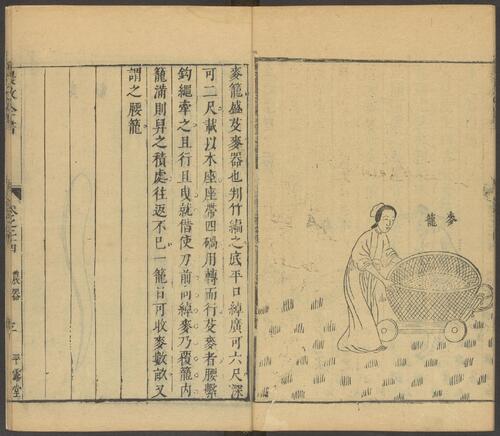 麥籠
麥籠盛芟麥器也判竹編之底平口綽廣可六尺深
可二尺載以木座座帶四碢用轉而行芟麥者腰繫
鈎繩牽之且行且曳就借使刀前向綽麥乃覆籠內
籠滿則舁之積處往返不已一籠日可收麥數畝又
謂之腰籠
農政全書
卷之二十四
農器
三
平露堂